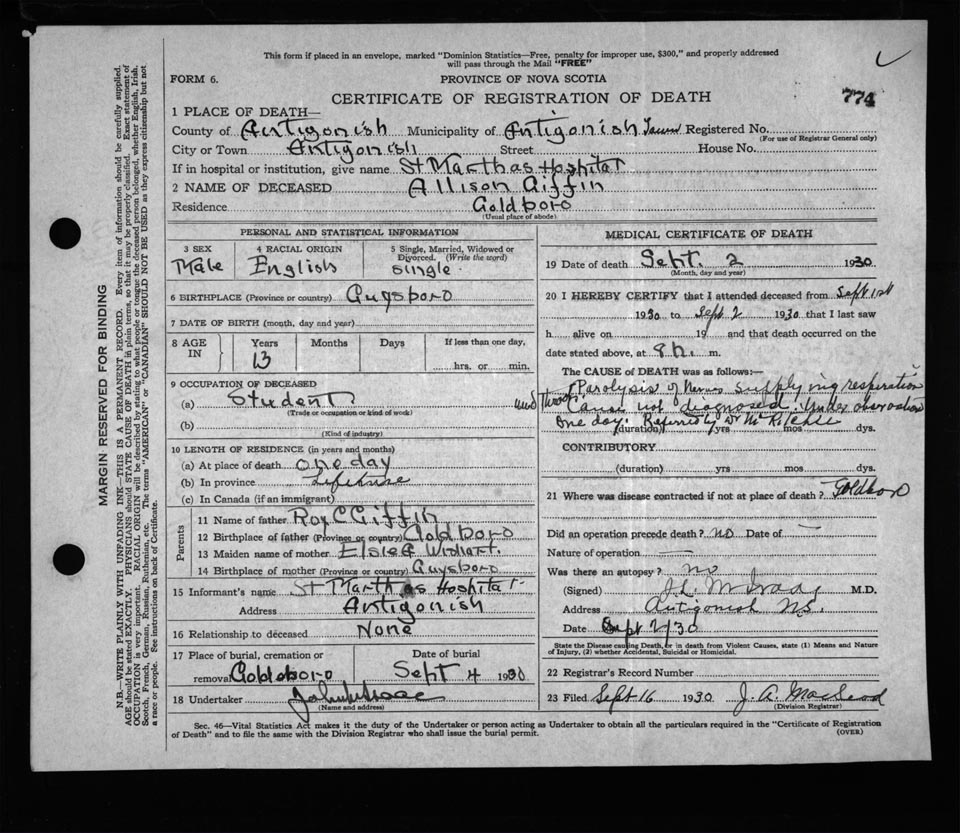 This form if placed in an envelope, marked "Dominion Statistics—Free, penalty for improper use, $300," and properly addressed
will pass through the Mail "FREE"
FORM 6.
PROVINCE OF NOVA SCOTIA
CERTIFICATE OF REGISTRATION OF DEATH
774
1 PLACE OF DEATH—
County of Antigonish Municipality of Antigonish Town Registered No.
(For use of Registrar General only)
City or Town Antigonish Street House No.
If in hospital or institution, give name St Marthas Hospital
2 NAME OF DECEASED Allison Giffin
Residence Goldboro
(Usual place of abode)
PERSONAL AND STATISTICAL INFORMATION
3 SEX
Male
4 RACIAL ORIGIN
English
5 Single, Married, Widowed or
Divorced. (Write the word)
Single
6 BIRTHPLACE (Province or country) Guysboro
7 DATE OF BIRTH (month, day and year)
8 AGE
IN
Years Months Days If less than one day,
13
hrs. or min.
9 OCCUPATION OF DECEASED
(a) Student
(Trade or occupation or kind of work)
(b)
(Kind of industry)
10 LENGTH OF RESIDENCE (in years and months)
(a) At place of death one day
(b) In province Lifetime
(c) In Canada (if an immigrant)
Parents
11 Name of father Roy C Giffin
12 Birthplace of father (Province or country) Goldboro
13 Maiden name of mother Elsie G
14 Birthplace of mother (Province or country) Guysboro
15 Informant's name St Marthas Hospital
Address Antigonish
16 Relationship to deceased None
17 Place of burial, cremation or
removal Goldboro
Date of burial
Sept 4 1930
18 Undertaker
(Name and address)
MEDICAL CERTIFICATE OF DEATH
19 Date of death Sept. 2 1930
(Month, day and year)
20 I HEREBY CERTIFY that I attended deceased from Sept 1st
1930 to Sept 2 1930 that I last saw
h alive on 19 and that death occurred on
date stated above, at m.
The CAUSE of DEATH was as follows:
Paralysis of Nerves supplying respiration
and Throat Cause not diagnosed. Under observation
one day. Referred by Dr
(duration) yrs mos dys.
CONTRIBUTORY
(duration) yrs mos dys.
21 Where was disease contracted if not at place of death? Goldboro
Did an operation precede death? no Date of —
Nature of operation —
Was there an autopsy? no
(Signed) M.D.
Address Antigonish N.S.
Date Sept 2/30
State the Disease causing Death, or in death from Violent Causes, state (1) Means and Nature
of Injury, (2) whether Accidental, Suicidal or Homicidal.
22 Registrar's Record Number
23 Filed Sept 16 1930 J. A. MacLeod
(Division Registrar)
Sec. 46—Vital Statistics Act makes it the duty of the Undertaker or person acting as Undertaker to obtain all the particulars required in the "Certificate of Registration
of Death" and to file the same with the Division Registrar who shall issue the burial permit.
(OVER)
MARGIN RESERVED FOR BINDING
N.B.—WRITE PLAINLY WITH UNFADING INK—THIS IS A PERMANENT RECORD. Every item of information should be carefully supplied.
AGE should be stated EXACTLY. PHYSICIANS should STATE CAUSE OF DEATH in plain terms, so that it may be properly classified. Exact statement of
OCCUPATION is very important. RACIAL ORIGIN will be described by stating to what people or tongue the deceased person belonged, whether English, Irish,
Scotch, French, German, Russian, Ruthenian, etc. The terms "AMERICAN" or "CANADIAN" SHOULD NOT BE USED as they express citizenship but not
a race or people. See instructions on back of Certificate.